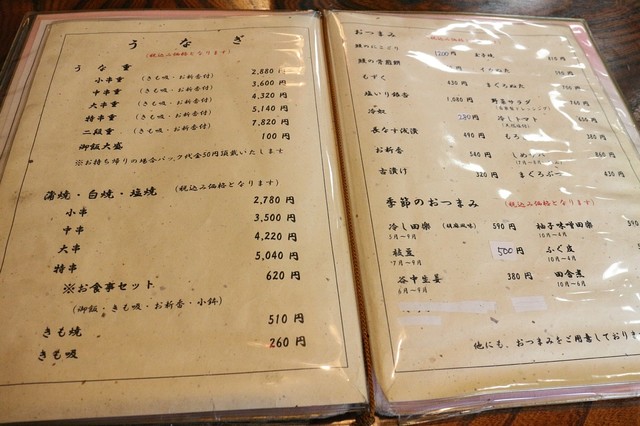 うなぎ
(税込み価格となります)
うな重
小串重 (きも吸・お新香付) 2,880円
中串重 (きも吸・お新香付) 3,600円
大串重 (きも吸・お新香付) 4,320円
特串重 (きも吸・お新香付) 5,140円
二段重 (きも吸・お新香付) 7,820円
御飯大盛 100円
※お持ち帰りの場合パック代金50円頂戴いたします
蒲焼・白焼・塩焼 (税込み価格となります)
小串 2,780円
中串 3,500円
大串 4,220円
特串 5,040円
※お食事セット 620円
(御飯・きも吸・お新香・小鉢)
きも焼 510円
きも吸 260円
おつまみ (税込み価格となります)
鰻のにこごり 1200円
鰻の骨煎餅
もずく 430円 まぐろぬた
塩いり銀杏 1,080円 野菜サラダ
冷奴 280円 冷しトマト
長なす浅漬 490円
お新香 540円
古漬け 320円 430円
季節のおつまみ (税込み価格となります)
冷し田楽 590円 柚子味噌田楽 590
5月〜9月 10月〜4月
枝豆 500円 ふぐ皮
7月〜9月 10月〜4月
谷中生姜 380円 田舎煮
6月〜9月 10月〜6月
他にも、おつまみをご用意しており